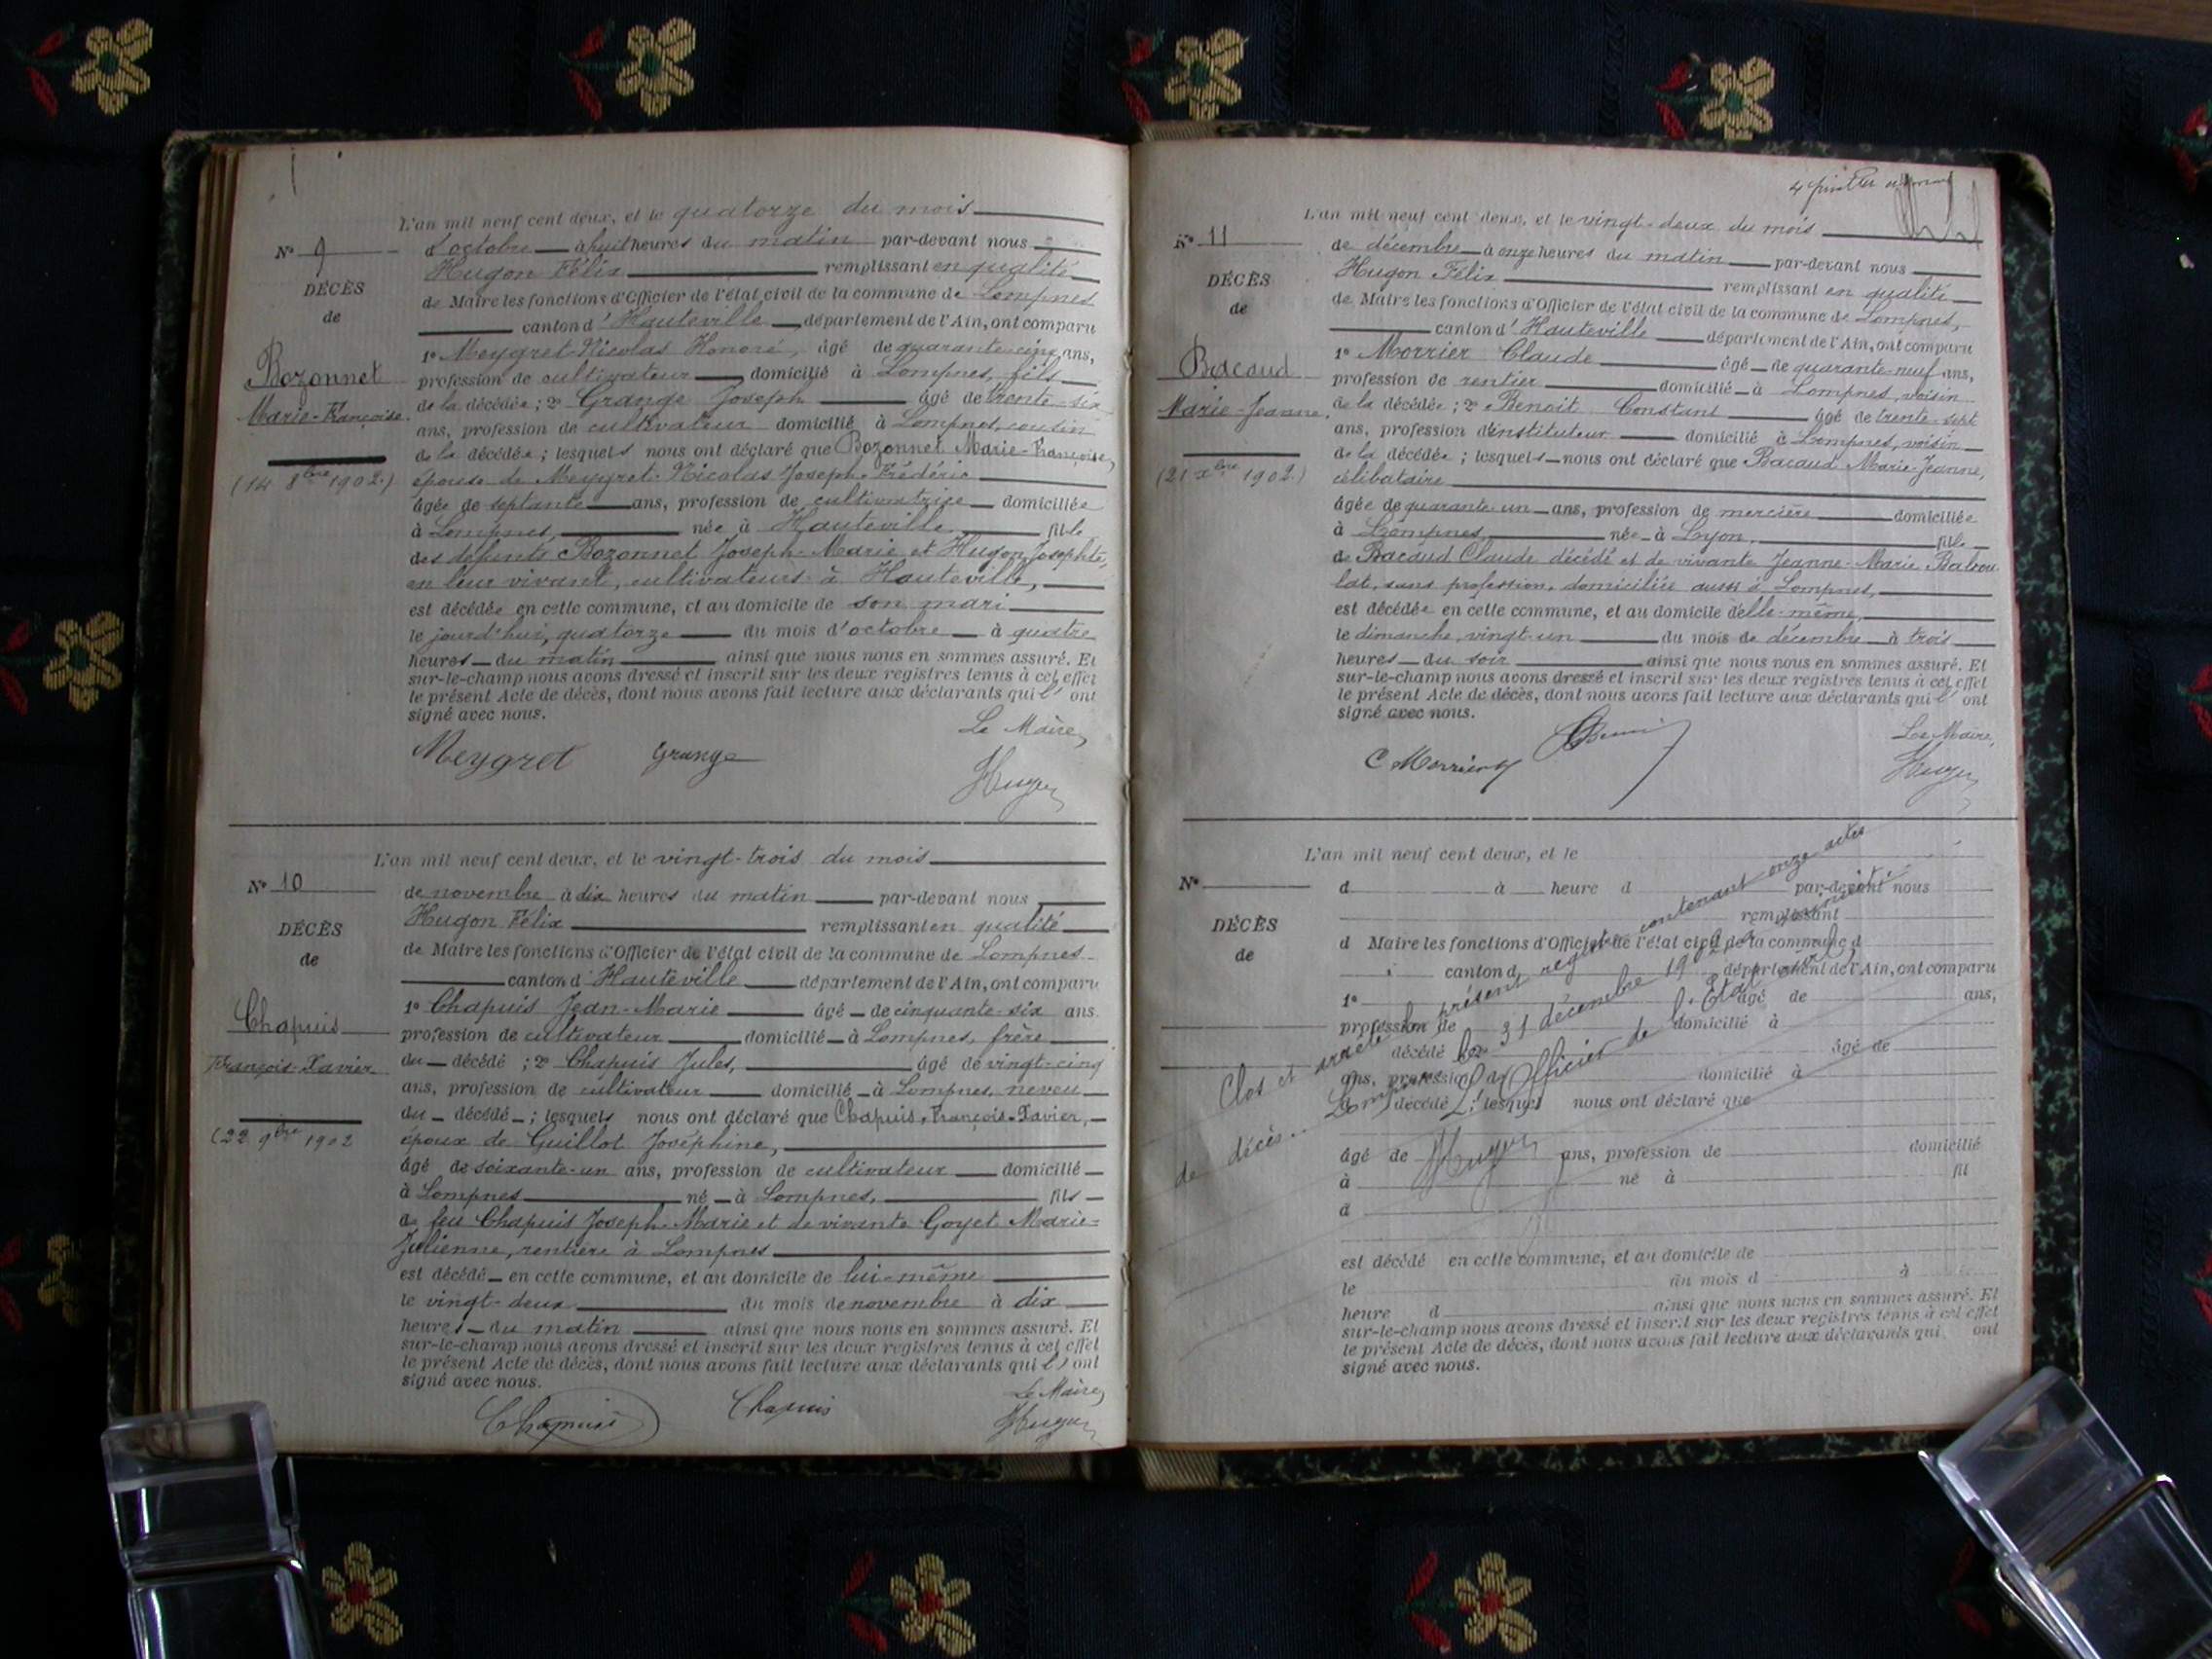 L'an mil neuf cent deux, et le quatorze du mois
N° 9
d'octobre à huit heures du matin par-devant nous
Hugon Félix remplissant en qualité
DÉCÈS
de Maire les fonctions d'Officier de l'état civil de la commune de Lompnes
de
canton d'Hauteville département de l'Ain, ont comparu
Bozonnet
1° Meygret-Nicolas Honoré, âgé de quarante-cinq ans,
profession de cultivateur domicilié à Lompnes, fils
Marie-Françoise
de la décédée; 2° Grange Joseph âgé de trente-six
ans, profession de cultivateur domicilié à Lompnes, cousin
de la décédée; lesquels nous ont déclaré que Bozonnet Marie-Françoise,
(14 8bre 1902)
épouse de Meygret-Nicolas Joseph-Frédéric
âgée de septante ans, profession de cultivatrice domiciliée
à Lompnes, née à Hauteville fille
des défunts Bozonnet Joseph-Marie et Hugon Josephte,
en leur vivant, cultivateurs à Hauteville,
est décédée en cette commune, et au domicile de son mari
le jourd'hui, quatorze du mois d'octobre à quatre
heures du matin ainsi que nous nous en sommes assuré. Et
sur-le-champ nous avons dressé et inscrit sur les deux registres tenus à cet effet
le présent Acte de décès, dont nous avons fait lecture aux déclarants qui l'ont
signé avec nous.
Le Maire,
Meygret Grange
Hugon
L'an mil neuf cent deux, et le vingt-trois du mois
N° 10
de novembre à dix heures du matin par-devant nous
Hugon Félix remplissant en qualité
DÉCÈS
de Maire les fonctions d'Officier de l'état civil de la commune de Lompnes
de
canton d'Hauteville département de l'Ain, ont comparu
Chapuis
1° Chapuis Jean-Marie âgé de cinquante-six ans
profession de cultivateur domicilié à Lompnes, frère
François-Xavier
du décédé; 2° Chapuis Jules, âgé de vingt-cinq
ans, profession de cultivateur domicilié à Lompnes, neveu
du décédé; lesquels nous ont déclaré que Chapuis, François-Xavier,
(22 9bre 1902
époux de Guillot Joséphine,
âgé de soixante-un ans, profession de cultivateur domicilié
à Lompnes né à Lompnes, fils
de feu Chapuis Joseph-Marie et de vivante Goyet Marie-
Julienne, rentière à Lompnes
est décédé en cette commune, et au domicile de lui-même
le vingt-deux du mois de novembre à dix
heures du matin ainsi que nous nous en sommes assuré. Et
sur-le-champ nous avons dressé et inscrit sur les deux registres tenus à cet effet
le présent Acte de décès, dont nous avons fait lecture aux déclarants qui l'ont
signé avec nous.
Le Maire,
Chapuis Chapuis
Hugon
4
L'an mil neuf cent deux, et le vingt-deux du mois
N° 11
de décembre à onze heures du matin par-devant nous
Hugon Félix remplissant en qualité
DÉCÈS
de Maire les fonctions d'Officier de l'état civil de la commune de Lompnes,
de
canton d'Hauteville département de l'Ain, ont comparu
Bacaud
1° Morrier Claude âgé de quarante-neuf ans,
profession de rentier domicilié à Lompnes, voisin
Marie-Jeanne,
de la décédée; 2° Benoit Constant âgé de trente-sept
ans, profession d'instituteur domicilié à Lompnes, voisin
de la décédée; lesquels nous ont déclaré que Bacaud Marie-Jeanne,
(21 xbre 1902.)
célibataire
âgée de quarante-un ans, profession de mercière domiciliée
à Lompnes née à Lyon, fille
de Bacaud Claude décédé et de vivante Jeanne-Marie
sans profession, domiciliée aussi à Lompnes,
est décédée en cette commune, et au domicile d'elle-même,
le dimanche, vingt-un du mois de décembre à trois
heures du soir ainsi que nous nous en sommes assuré. Et
sur-le-champ nous avons dressé et inscrit sur les deux registres tenus à cet effet
le présent Acte de décès, dont nous avons fait lecture aux déclarants qui l'ont
signé avec nous.
Le Maire,
C Morrier
Hugon
L'an mil neuf cent deux, et le
N°
d à heure d par-devant nous
remplissant
DÉCÈS
d Maire les fonctions d'Officier de l'état civil de la commune d
de
canton d département de l'Ain, ont comparu
1° âgé de ans,
profession de domicilié à
décédé ; 2° âgé de
ans, profession de domicilié à
d décédé ; lesquel nous ont déclaré que
âgé de ans, profession de domicilié
à né à fil
d
est décédé en cette commune, et au domicile de
le du mois d à
heure d ainsi que nous nous en sommes assuré. Et
sur-le-champ nous avons dressé et inscrit sur les deux registres tenus à cet effet
le présent Acte de décès, dont nous avons fait lecture aux déclarants qui ont
signé avec nous.
Clos et arrêté le présent registre contenant onze actes
de décès. Lompnes le 31 décembre 1902, à minuit
L'Officier de l'État civil,
Hugon